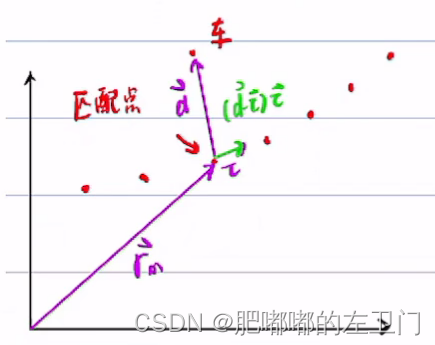 车
d⃗
匹配点
(d⃗τ⃗)τ⃗
τ⃗
r⃗m
CSDN @肥嘟嘟的左卫门